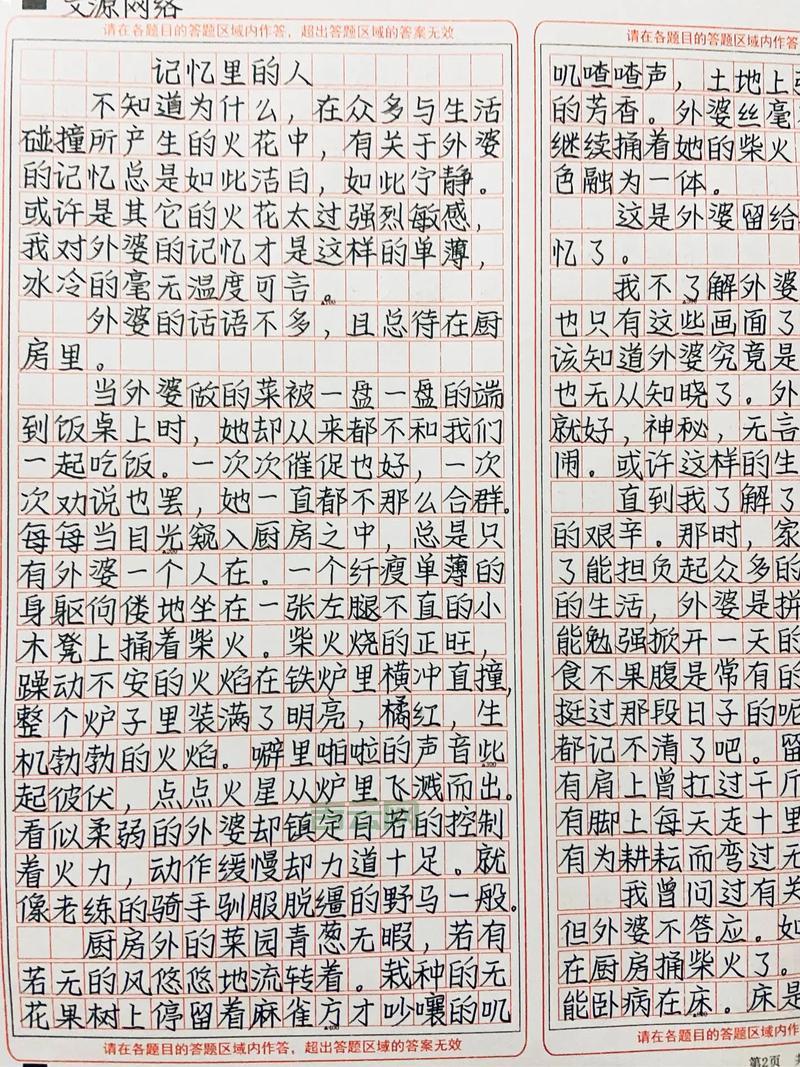 文源网络
请在各题目的答题区域内作答，超出答题区域的答案无效
记忆里的人
不知道为什么，在众多与生活
碰撞所产生的火花中，有关于外婆
的记忆总是如此洁白，如此宁静。
或许是其它的火花太过强烈敏感，
我对外婆的记忆才是这样的单薄，
冰冷的毫无温度可言。
外婆的话语不多，且总待在厨
房里。
当外婆做的菜被一盘一盘的端
到饭桌上时，她却从来都不和我们
一起吃饭。一次次催促也好，一次
次劝说也罢，她一直都不那么合群。
每每当目光窥入厨房之中，总是只
有外婆一个人在。一个纤瘦单薄的
身躯佝偻地坐在一张左腿不直的小
木凳上捅着柴火。柴火烧的正旺，
躁动不安的火焰在铁炉里横冲直撞，
整个炉子里装满了明亮，橘红，生
机勃勃的火焰。噼里啪啦的声音此
起彼伏，点点火星从炉里飞溅而出。
看似柔弱的外婆却镇定自若的控制
着火力，动作缓慢却力道十足。就
像老练的骑手驯服脱缰的野马一般。
厨房外的菜园青葱无暇，若有
若无的风悠悠地流转着。栽种的无
花果树上停留着麻雀方才吵嚷的叽
请在各题目的答题区域内作答，超出答题区域的答案无效
请在各题目的答题区域内作答
叽喳喳声，土地上
的芳香。外婆丝毫
继续捅着她的柴火
色融为一体。
这是外婆留给
忆了。
我不了解外婆
也只有这些画面了
该知道外婆究竟是
也无从知晓了。外
就好，神秘，无言
闹。或许这样的生
直到我了解了
的艰辛。那时，家
了能担负起众多的
的生活，外婆是拼
能勉强掀开一天的
食不果腹是常有的
挺过那段日子的呢
都记不清了吧。留
有肩上曾扛过千斤
有脚上每天走十里
有为耕耘而弯过无
我曾问过有关
但外婆不答应。如
在厨房捅柴火了。
能卧病在床。床是
请在各题目的答题区域内作
第2页